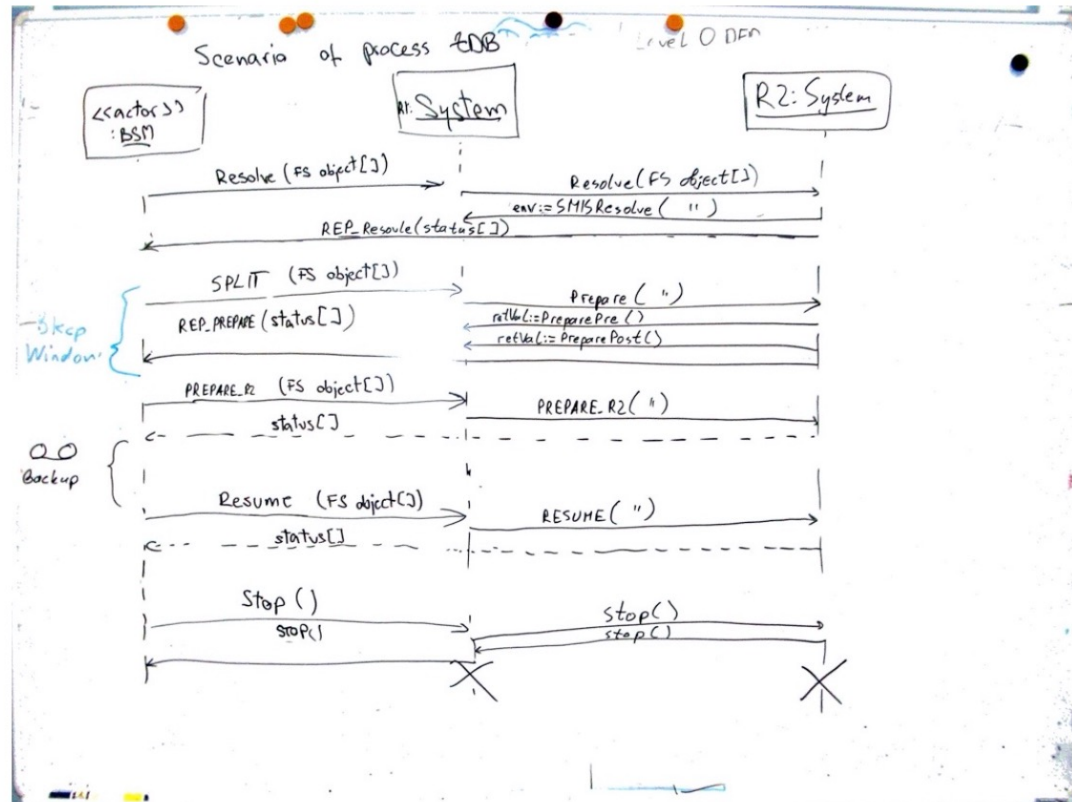 Scenario of process tDB
Level 0 DFD
<<actor>>
: BSM
R1: System
R2: System
Resolve (FS object[])
Resolve (FS object[])
env:= SMISResolve ( " )
REP_Resovle (status[])
SPLIT (FS object[])
Prepare ( " )
REP_PREPARE (status[])
retVal:= PreparePre ()
retVal:= PreparePost ()
Bkcp
Window
PREPARE_R2 (FS object[])
PREPARE_R2 ( " )
status[]
Backup
Resume (FS object[])
RESUME ( " )
status[]
Stop ()
stop()
STOP()
stop()